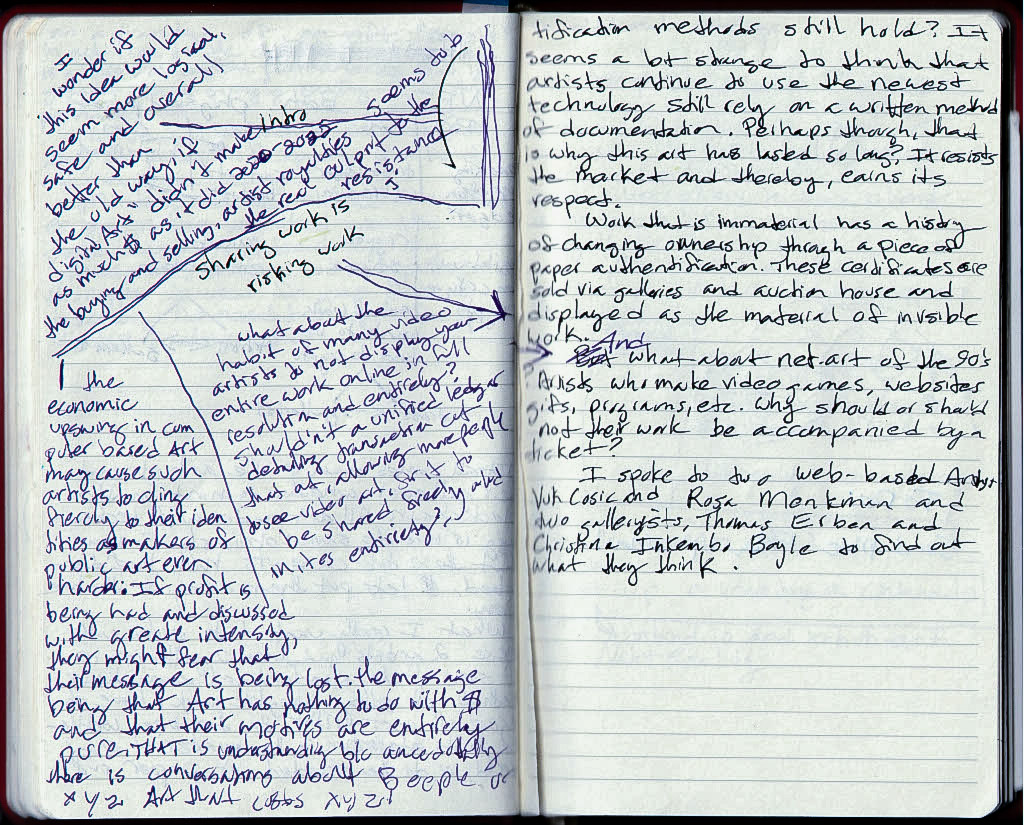 I
wonder if
this Idea would
seem more logical,
safe and overall
better than
the old way if
digital Art didn't make
as much $ as it did 2020-2022
the buying and selling, artist royalties
seems to b
the real culprit to the
resistance
intro
Sharing work is
risking work
what about the
habit of many video
artists to not display your
entire work online in full
resolution and entirety?
Shouldn't a unified ledger
detailing transaction cut
that out, allowing more people
to see video art, for it to
be shared freely and
in its entirety?
the
economic
upswing in com
puter based Art
may cause such
artists to cling
fiercly to their iden
tities as makers of
public art even
harder. If profit is
being had and discussed
with greate intensity,
they might fear that
their message is being lost. the message
being that Art has nothing to do with $
and that their motives are entirely
pure. THAT is understanding b/c anecdotally
there is conversations about Beeple or
xyz Art that costs xyz!
tification methods still hold? It
seems a bit strange to think that
artists continue to use the newest
technology still rely on a written method
of documentation. Perhaps though, that
is why this art has lasted so long? It resists
the market and thereby, earns its
respect.
Work that is immaterial has a history
of changing ownership through a piece of
paper authentification. These certificates are
sold via galleries and auction house and
displayed as the material of invisible
work. And
what about net.art of the 90's
Artists who make video games, websites
gifs, programs, etc. why should or should
not their work be accompanied by a
ticket?
I spoke to two web-based Artists
Vuk Cosic and Rosa Menkman and
two gallerysts, Thomas Erben and
Christina Inkembo Boyle to find out
what they think.